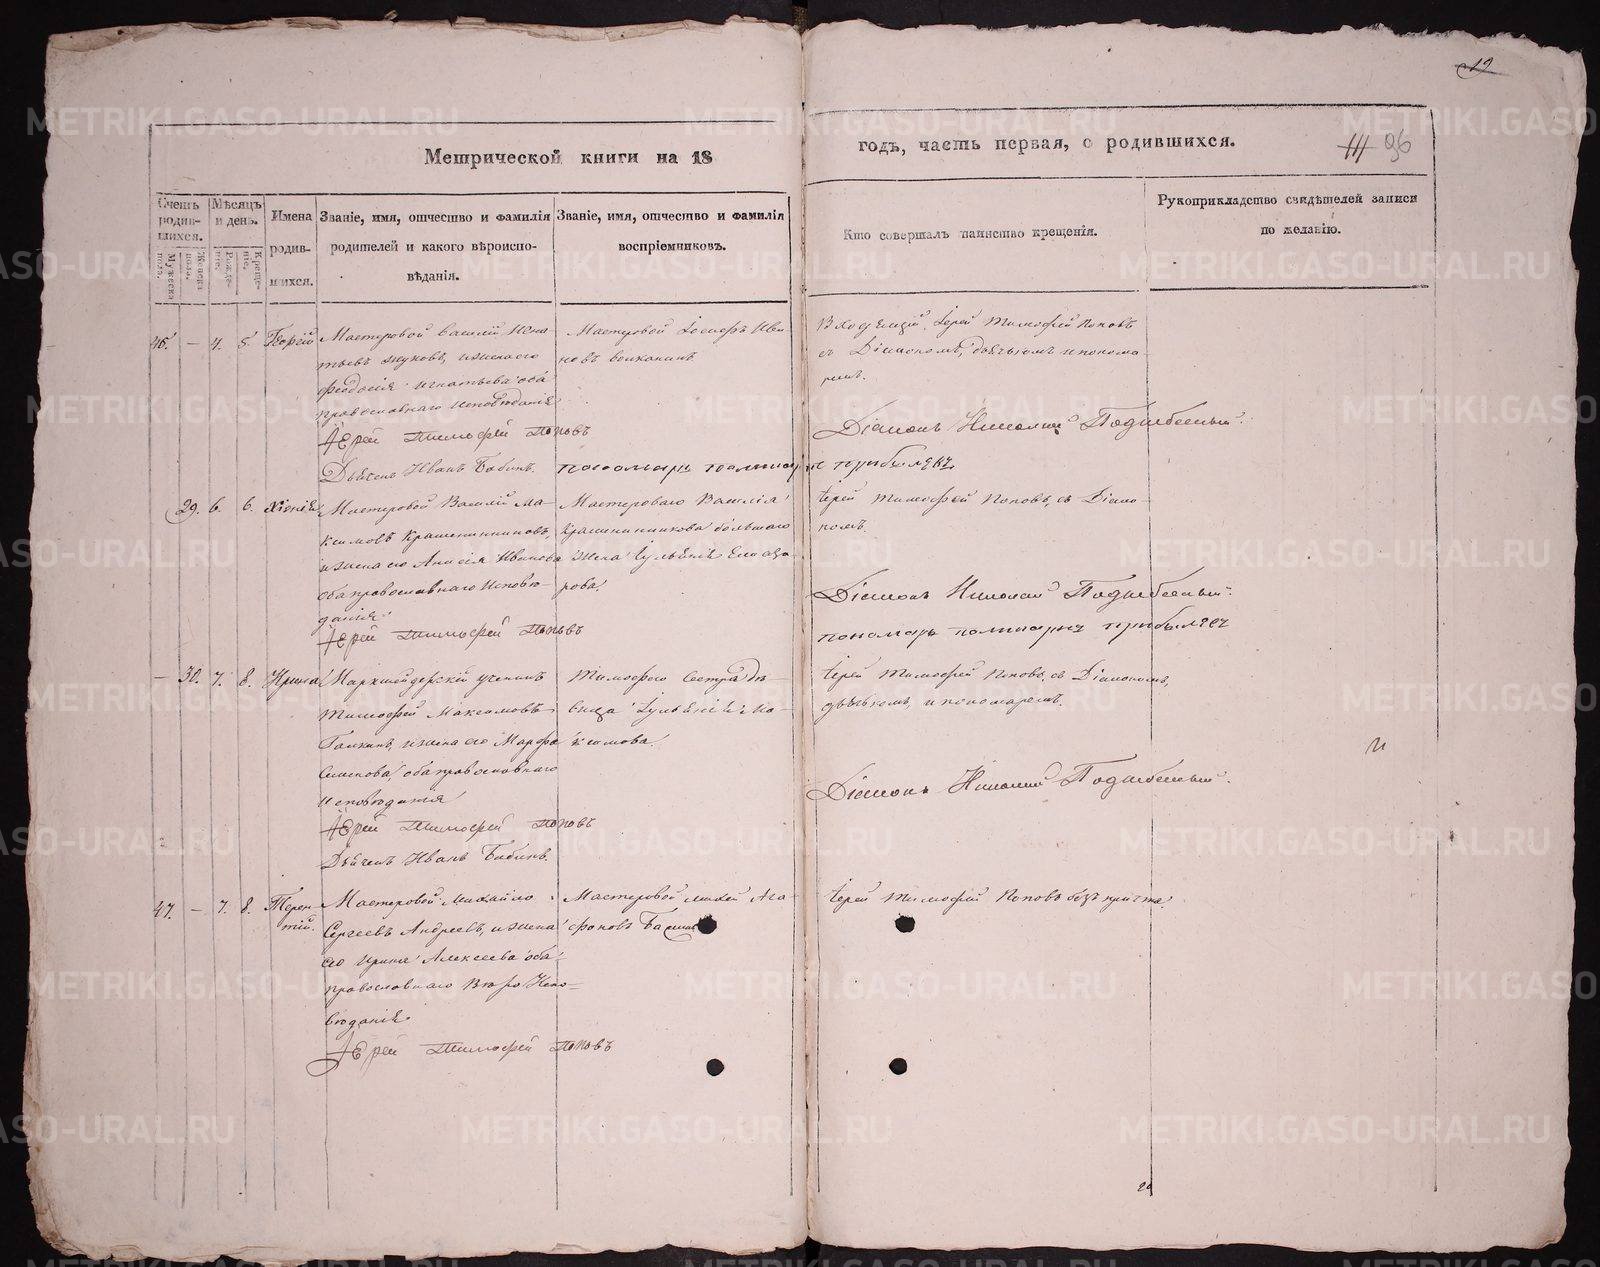 19
Метрической книги на 18
годъ, часть первая, о родившихся.
96
Счетъ родив-шихся.
Мужеска пола.
Женска пола.
Мѣсяцъ и день.
Рожде-ніе.
Креще-ніе.
Имена родив-шихся.
Званіе, имя, отчество и фамилія
родителей и какого вѣроиспо-
вѣданія.
Званіе, имя, отчество и фамилія
воспріемниковъ.
Кто совершалъ таинство крещенія.
Рукоприкладство свидѣтелей записи
по желанію.
46. — 4. 5. Георгій
Мастеровой Василій Игна-
тьевъ Жуковъ, и жена его
Феодосія Игнатьева оба
православнаго исповѣданія
Іерей Тимофей Поповъ
Дьячекъ Иванъ Бабинъ.
Мастеровой Іосифъ Ива-
новъ
Іерей Тимофей Поповъ
съ Діакономъ, дьячкомъ и понома-
ремъ.
Діаконъ Николай
пономарь
29. 6. 6.
Мастеровой Василій Ма-
ксимовъ Крашенинниковъ,
и жена его Анисія Иванова
оба православнаго исповѣ-
данія
Іерей Тимофей Поповъ
Мастероваго Василія
Крашенинникова большаго
жена Іуліанія
рова.
Іерей Тимофей Поповъ, съ Діако-
номъ.
Діаконъ Николай
пономарь
— 30. 7. 8. Ирина
Маркшейдерскій ученикъ
Тимофей Максимовъ
и жена его Марфа
оба православнаго
исповѣданія
Іерей Тимофей Поповъ
Дьячекъ Иванъ Бабинъ.
Тимофея сестра дѣ-
вица Іуліанія Ма-
ксимова.
Іерей Тимофей Поповъ, съ Діакономъ,
дьячкомъ, и пономаремъ.
Діаконъ Николай
47. — 7. 8. Терен-
тій.
Мастеровой Михайло
Сергеевъ Андреевъ, и жена
его Ирина Алексеева оба
православнаго Вѣро Испо-
вѣданія
Іерей Тимофей Поповъ
Мастеровой Михей Ага-
фоновъ
Іерей Тимофей Поповъ безъ причта.
METRIKI.GASO-URAL.RU